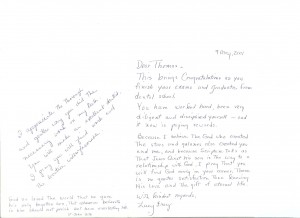 9 May, 2001
Dear Thomas -
This brings Congratulations as you
finish your exams and graduate from
dental school.
You have worked hard, been very
diligent and disciplined person - and
it now is paying rewards.
Because I believe The God who created
the stars and galaxies also created you
and me, and because
That Jesus Christ His son is the way to a
relationship with God I pray that you
will find God early in your career. There
is no greater satisfaction than knowing
His Love and the gift of eternal life
With Kindest regards,
I appreciate the thorough
and gentle way you did the
on my back
You will make an excellent dentist.
I pray you will find and
God so loved the world that he gave
his only begotten Son, that whosoever believeth
in him should not perish but have everlasting life